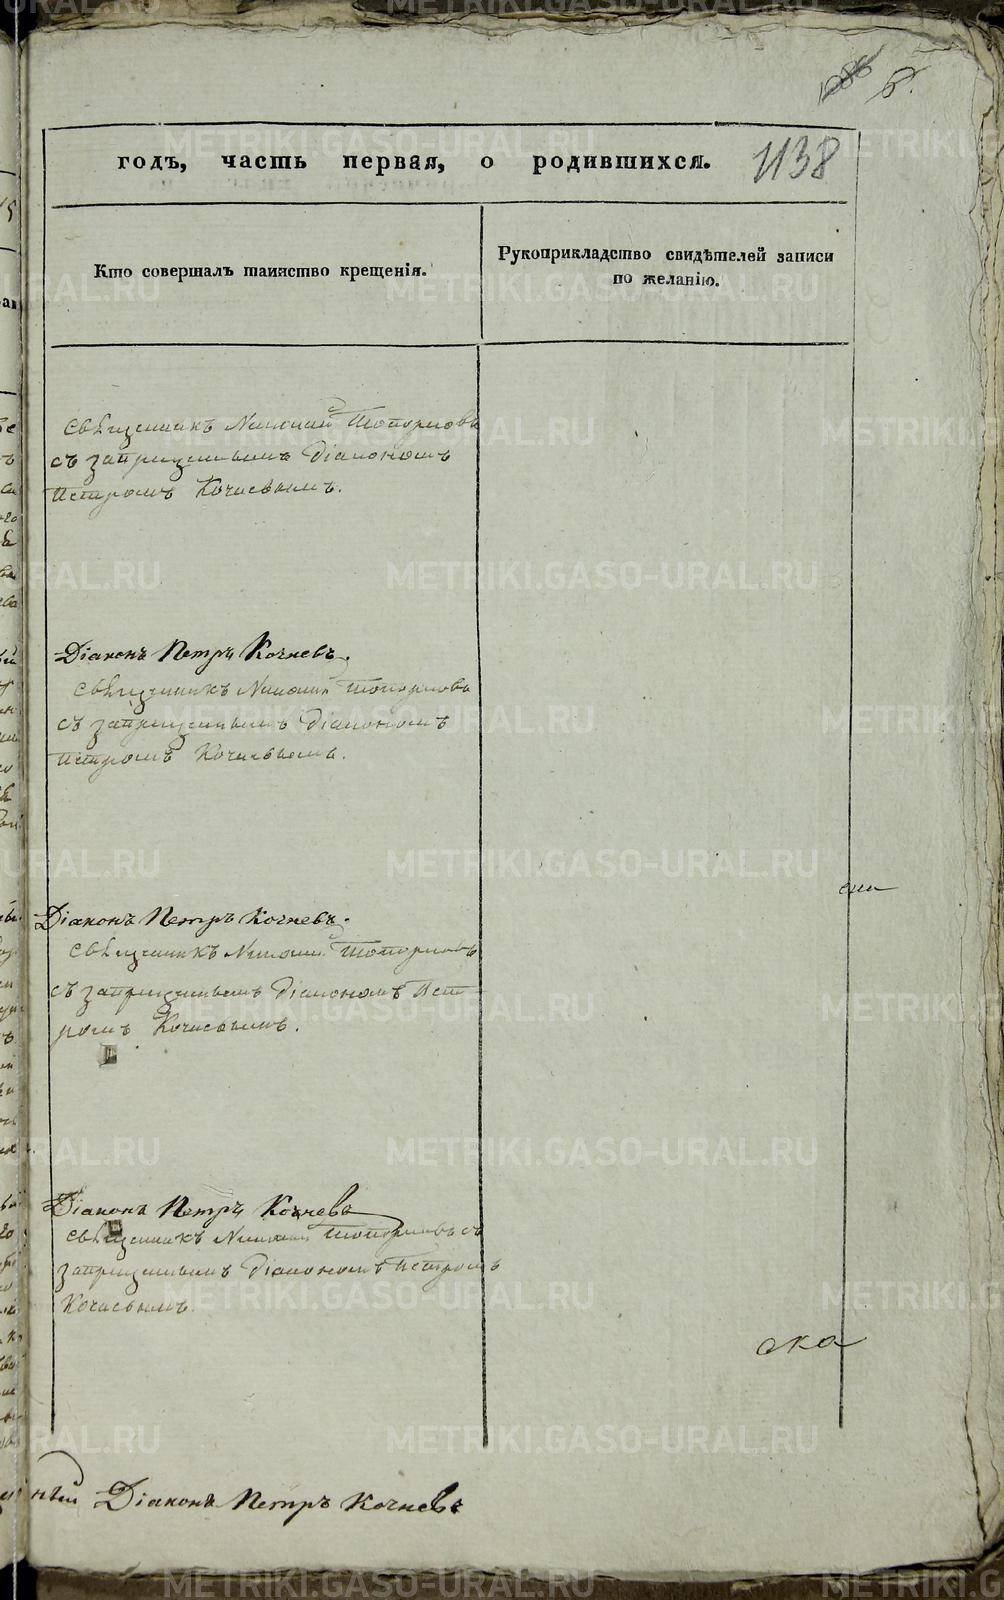 б.
годъ, часть первая, о родившихся. 1138
Кто совершалъ таинство крещенія.
Рукоприкладство свидѣтелей записи
по желанію.
Священникъ Николай Топорковъ
съ запрещеннымъ Діакономъ
Петромъ Кочневымъ.
Діаконъ Петръ Кочневъ.
Священникъ Николай Топорковъ
съ запрещеннымъ Діакономъ
Петромъ Кочневымъ.
Діаконъ Петръ Кочневъ.
Священникъ Николай Топорковъ
съ запрещеннымъ Діакономъ Пет
ромъ Кочневымъ.
Діаконъ Петръ Кочневъ
Священникъ Николай Топорковъ съ
запрещеннымъ Діакономъ Петромъ
Кочневымъ.
ска
Діаконъ Петръ Кочневъ
METRIKI.GASO-URAL.RU